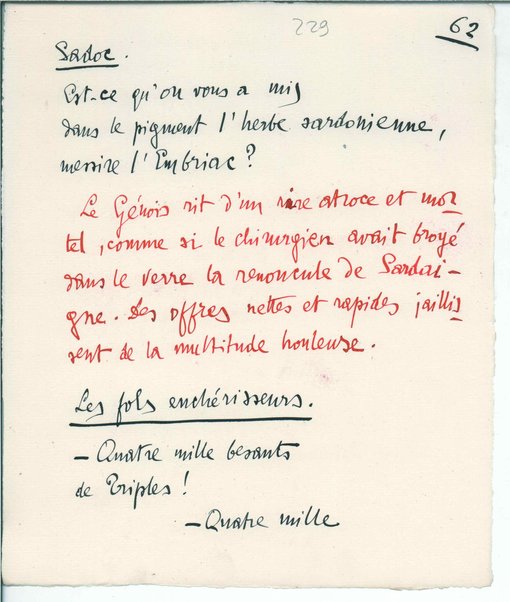 229
62
Sadoc.
Est-ce qu'on vous a mis
dans le pigment l'herbe sardonienne,
messire l'Embriac?
Le Génois rit d'un rire atroce et mor-
tel, comme si le chirurgien avait broyé
dans le verre la renoncule de Sardai-
gne. Des offres nettes et rapides jaillis-
sent de la multitude houleuse.
Les fols enchérisseurs.
— Quatre mille besants
de Triples!
— Quatre mille